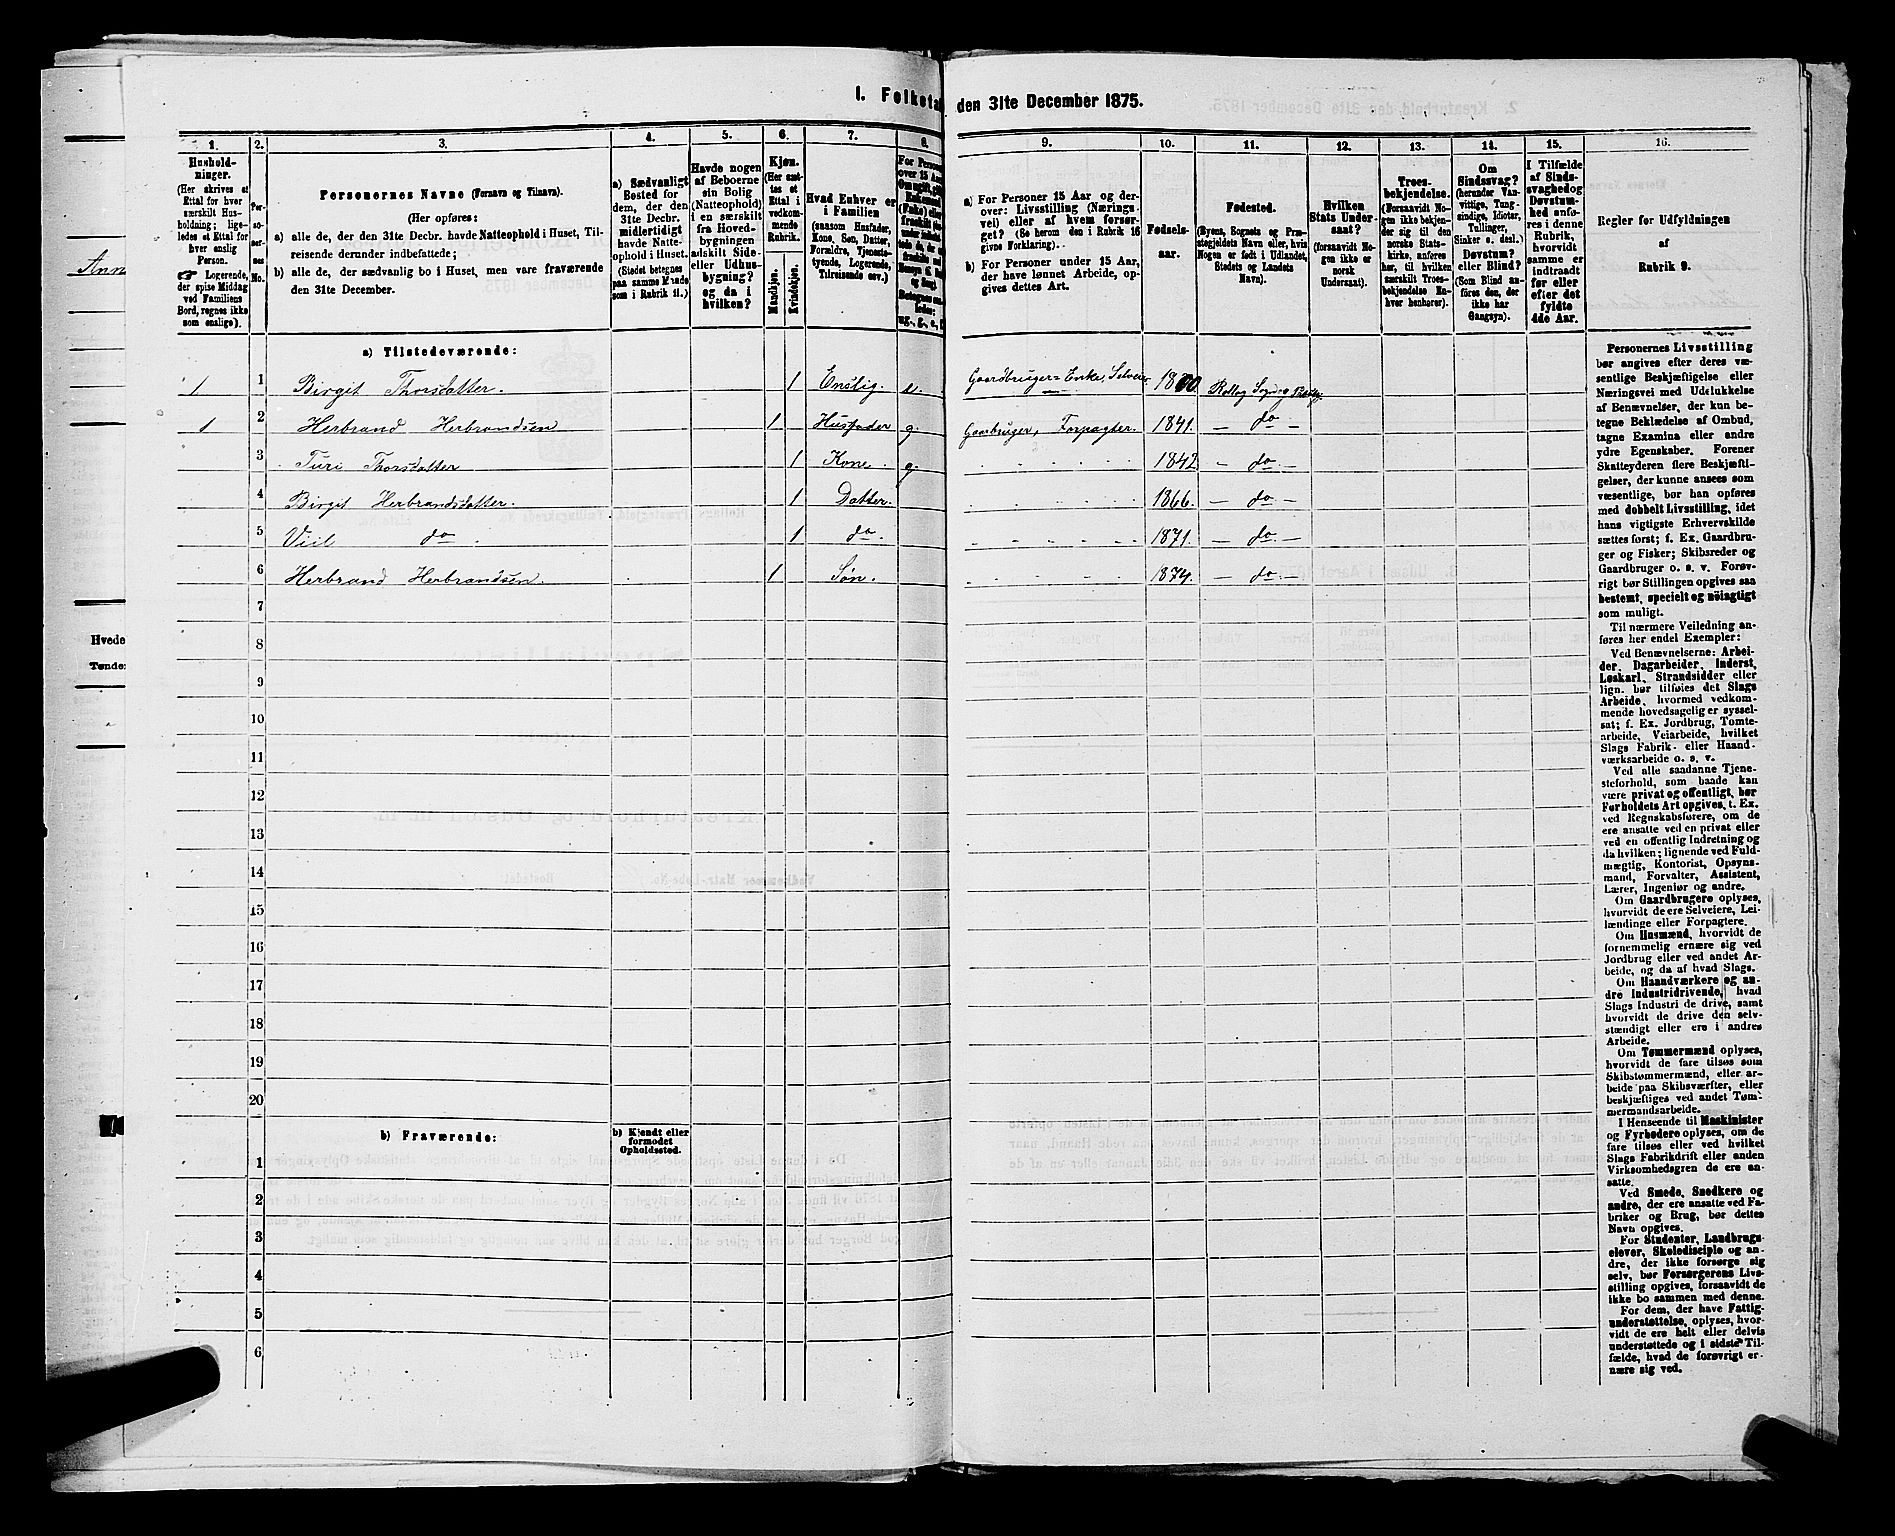 I. Folketa
den 31te December 1875.
1. 2. 3. 4. 5. 6. 7. 8. 9. 10. 11. 12. 13. 14. 15. 16.
Hushold-
ninger.
(Her skrives et
Ettal for hver
særskilt Hus-
holdning; lige-
ledes et Ettal for
hver enslig
Person.
☛ Logerende,
der spise Middag
ved Familiens
Bord, regnes ikke
som enslige).
Per-
so-
ner-
nes
No.
Personernes Navne (Fornavn og Tilnavn).
(Her opføres:
a) alle de, der den 31te Decbr. havde Natteophold i Huset, Til-
reisende derunder indbefattede;
b) alle de, der sædvanlig bo i Huset, men vare fraværende
den 31te December.
a) Sædvanligt
Bosted for
dem, der den
31te Decbr.
midlertidigt
havde Natte-
ophold i Huset.
(Stedet betegnes
paa samme Maade
som i Rubrik 11.)
Havde nogen
af Beboerne
sin Bolig
(Natteophold)
i en særskilt
fra Hoved-
bygningen
adskilt Side-
eller Udhus-
bygning?
og da i
hvilken?
Kjøn.
(Her sæt-
tes et
Ettal i
vedkom-
mende
Rubrik.
Mandkjøn.
Kvindekjøn.
Hvad Enhver er
i Familien
(saasom Husfader,
Kone, Søn, Datter,
Forældre, Tjeneste-
tyende, Logerende,
Tilreisende osv.)
For Person
over 15 Aar
a) For Personer 15 Aar og der-
over: Livsstilling (Nærings-
vei) eller af hvem forsør-
get? (Se herom den i Rubrik 16
givne Forklaring).
b) For Personer under 15 Aar,
der have lønnet Arbeide, op-
gives dettes Art.
Fødsels-
aar.
Fødested.
(Byens, Sognets og Præ-
stegjeldets Navn eller, hvis
Nogen er født i Udlandet,
Stedets og Landets
Navn).
Hvilken
Stats Under-
saat?
(forsaavidt No-
gen ikke er
norsk
Undersaat).
Troes-
bekjendelse.
(Forsaavidt No-
gen ikke bekjen-
der sig til den
norske Stats-
kirke, anføres
her, til hvilken
særskilt Troes-
bekjendelse En-
hver henhører).
Om
Sindssvag?
(herunder Van-
vittige, Tung-
sindige, Idioter,
Tullinger,
Sinker o. desl.)
Døvstum?
eller Blind?
(Som Blind an-
føres den, der
ikke har
Gangsyn).
I Tilfælde
af Sinds-
svaghed og
Døvstum-
hed anfø-
res i denne
Rubrik,
hvorvidt
samme er
indtraadt
før eller
efter det
fyldte
4de Aar.
Regler for Udfyldningen
af
Rubrik 9.
a) Tilstedeværende:
1 1 Birgit Thorsdatter. 1 Enslig. e. Gaardbruger=Enke, Selveier 1800.
1 2 Herbrand Herbrandsen 1 Husfader g. Gaarbruger, Forpagter. 1841. — do —
3 Turi Thorsdatter 1 Kone. g. 1842 — do. —
4 Birgit Herbrandsdatter. 1 Datter. 1866. — do —
5 Viil do 1 do. 1871. — do —
6 Herbrand Herbrandsen. 1 Søn. 1874. — do. —
7
8
9
10
11
12
13
14
15
16
17
18
19
20
b) Fraværende:
b) Kjendt eller
formodet
Opholdssted.
1
2
3
4
5
6
Personernes Livsstilling
bør angives efter deres væ-
sentlige Beskjæftigelse eller
Næringsvei med Udelukkelse
af Benævnelser, der kun be-
tegne Beklædelse af Ombud,
tagne Examina eller andre
ydre Egenskaber. Forener
Skatteyderen flere Beskjæfti-
gelser, der kunne ansees som
væsentlige, bør han opføres
med dobbelt Livsstilling, idet
hans vigtigste Erhvervskilde
sættes først; f. Ex. Gaardbru-
ger og Fisker; Skibsreder og
Gaardbruger o. s. v. Forøv-
rigt bør Stillingen opgives saa
bestemt, specielt og nøiagtigt
som muligt.
Til nærmere Veiledning an-
føres her endel Exempler:
Ved Benævnelserne: Arbei-
der, Dagarbeider, Inderst,
Løskarl, Strandsidder eller
lign. bør tilføies det Slags
Arbeide, hvormed vedkom-
mende hovedsagelig er syssel-
sat; f. Ex. Jordbrug, Tomte-
arbeide, Veiarbeide, hvilket
Slags Fabrik- eller Haand-
værksarbeide o. s. v.
Ved alle saadanne Tjene-
steforhold, som baade kan
være privat og offentligt, bør
Forholdets Art opgives, t. Ex.
ved Regnskabsførere, om de
ere ansatte ved en privat eller
ved en offentlig Indretning og
da hvilken; lignende ved Fuld-
mægtig, Kontorist, Opsyns-
mand, Forvalter, Assistent,
Lærer, Ingeniør og andre.
Om Gaardbrugere oplyses,
hvorvidt de ere Selveiere, Lei-
lændinge eller Forpagtere.
Om Husmænd, hvorvidt de
fornemmelig ernære sig ved
Jordbrug eller ved andet Ar-
beide, og da af hvad Slags.
Om Haandværkere og an-
dre Industridrivende, hvad
Slags Industri de drive, samt
hvorvidt de drive den selv-
stændigt eller ere i andres
Arbeide.
Om Tømmermænd oplyses,
hvorvidt de fare tilsøs som
Skibstømmermænd, eller ar-
beide paa Skibsværfter, eller
beskjæftiges ved andet Tøm-
mermandsarbeide.
I Henseende til Maskinister
og Fyrbødere oplyses, om de
fare tilsøs eller ved hvilket
Slags Fabrikdrift eller anden
Virksomhedsgren de ere an-
satte.
Ved Smede, Snedkere og
andre, der ere ansatte ved Fa-
briker og Brug, bør dettes
Navn opgives.
For Studenter, Landbrugs-
elever, Skoledisciple og an-
dre, der ikke forsørge sig
selv, bør Forsørgerens Livs-
stilling opgives, forsaavidt de
ikke bo sammen med denne.
For dem, der have Fattig-
understøttelse, oplyses, hvor-
vidt de ere helt eller delvis
understøttede og i sidste Til-
fælde, hvad de forøvrigt er-
nære sig ved.
Ann
Hvede
Tønder